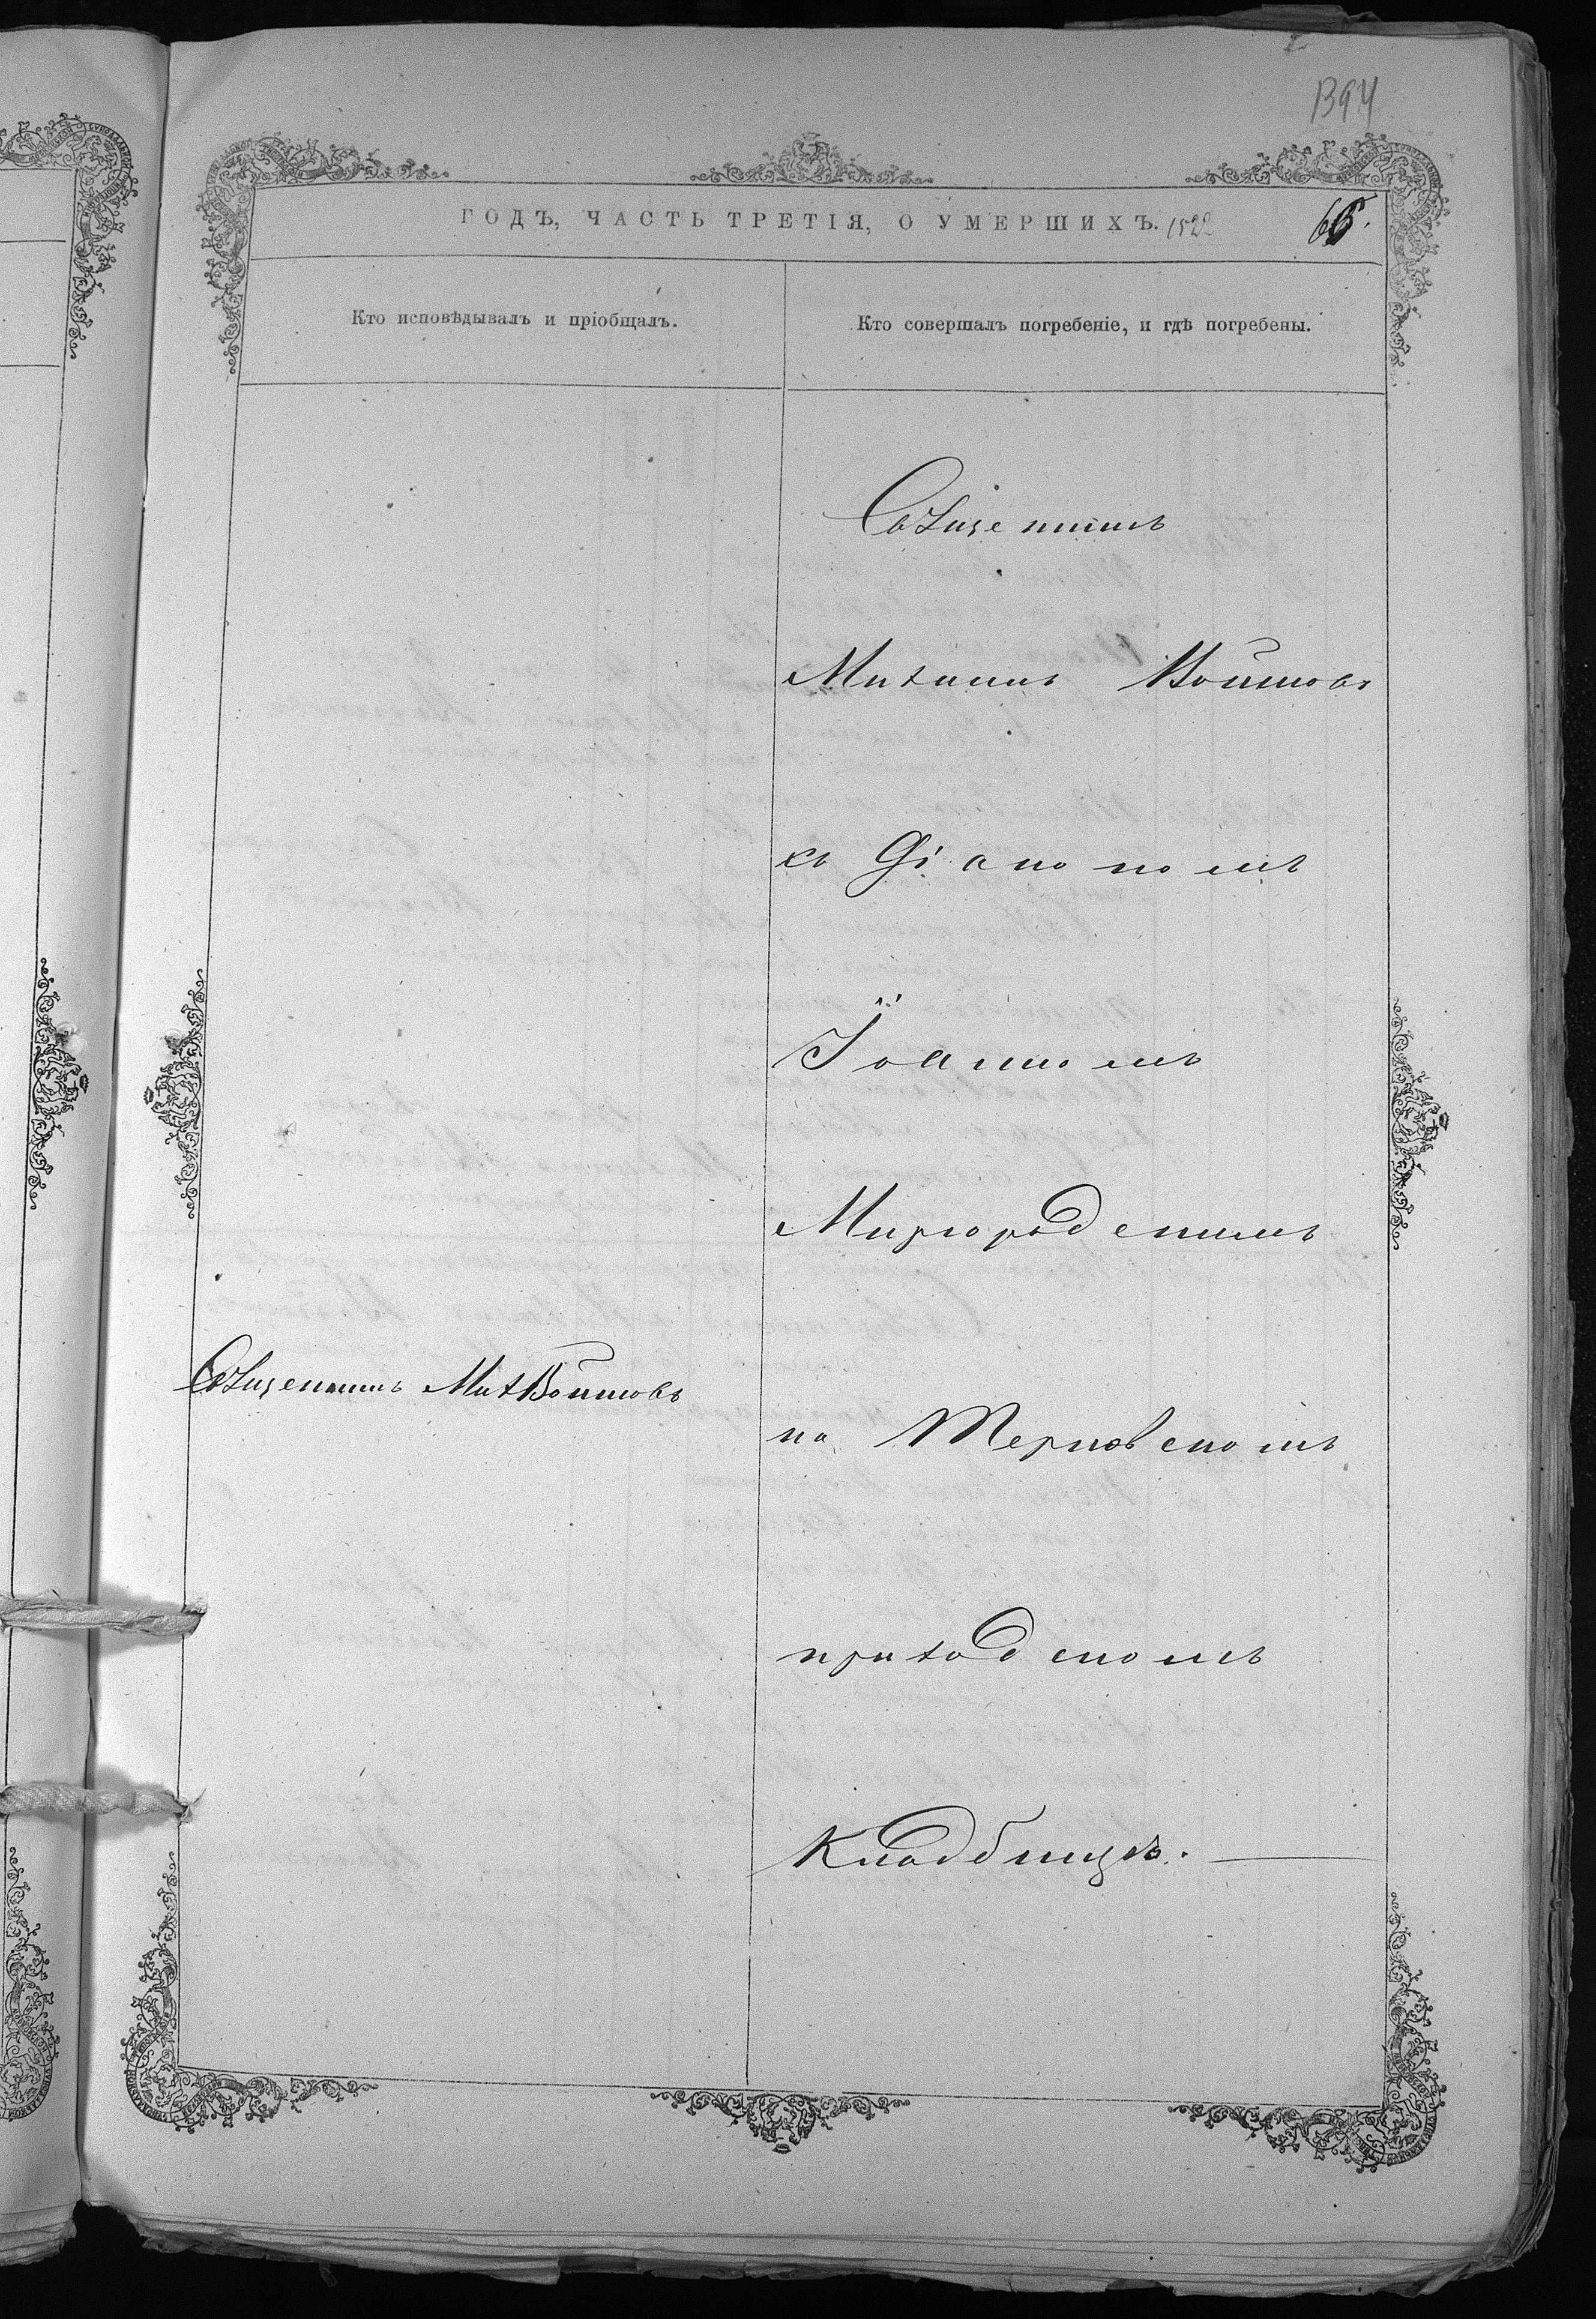 1394
ГОДЪ, ЧАСТЬ ТРЕТІЯ, О УМЕРШИХЪ. 1522
66.
Кто исповѣдывалъ и пріобщалъ.
Кто совершалъ погребеніе, и гдѣ погребены.
Священникъ
Михаилъ Войтовъ
съ Діакономъ
Іоанномъ
Миргородскимъ
Священникъ Мих Войтовъ
на Терновскомъ
приходскомъ
Кладбищѣ.